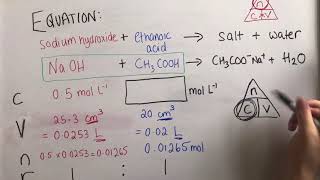 EQUATION:
sodium hydroxide + ethanoic acid → salt + water
NaOH + CH₃COOH → CH₃COO⁻Na⁺ + H₂O
C 0.5 mol L⁻¹ mol L⁻¹
V 25.3 cm³ 20 cm³
= 0.0253 L = 0.02 L
n 0.5 × 0.0253 = 0.01265 0.01265 mol
1 : 1
n
C V
C V